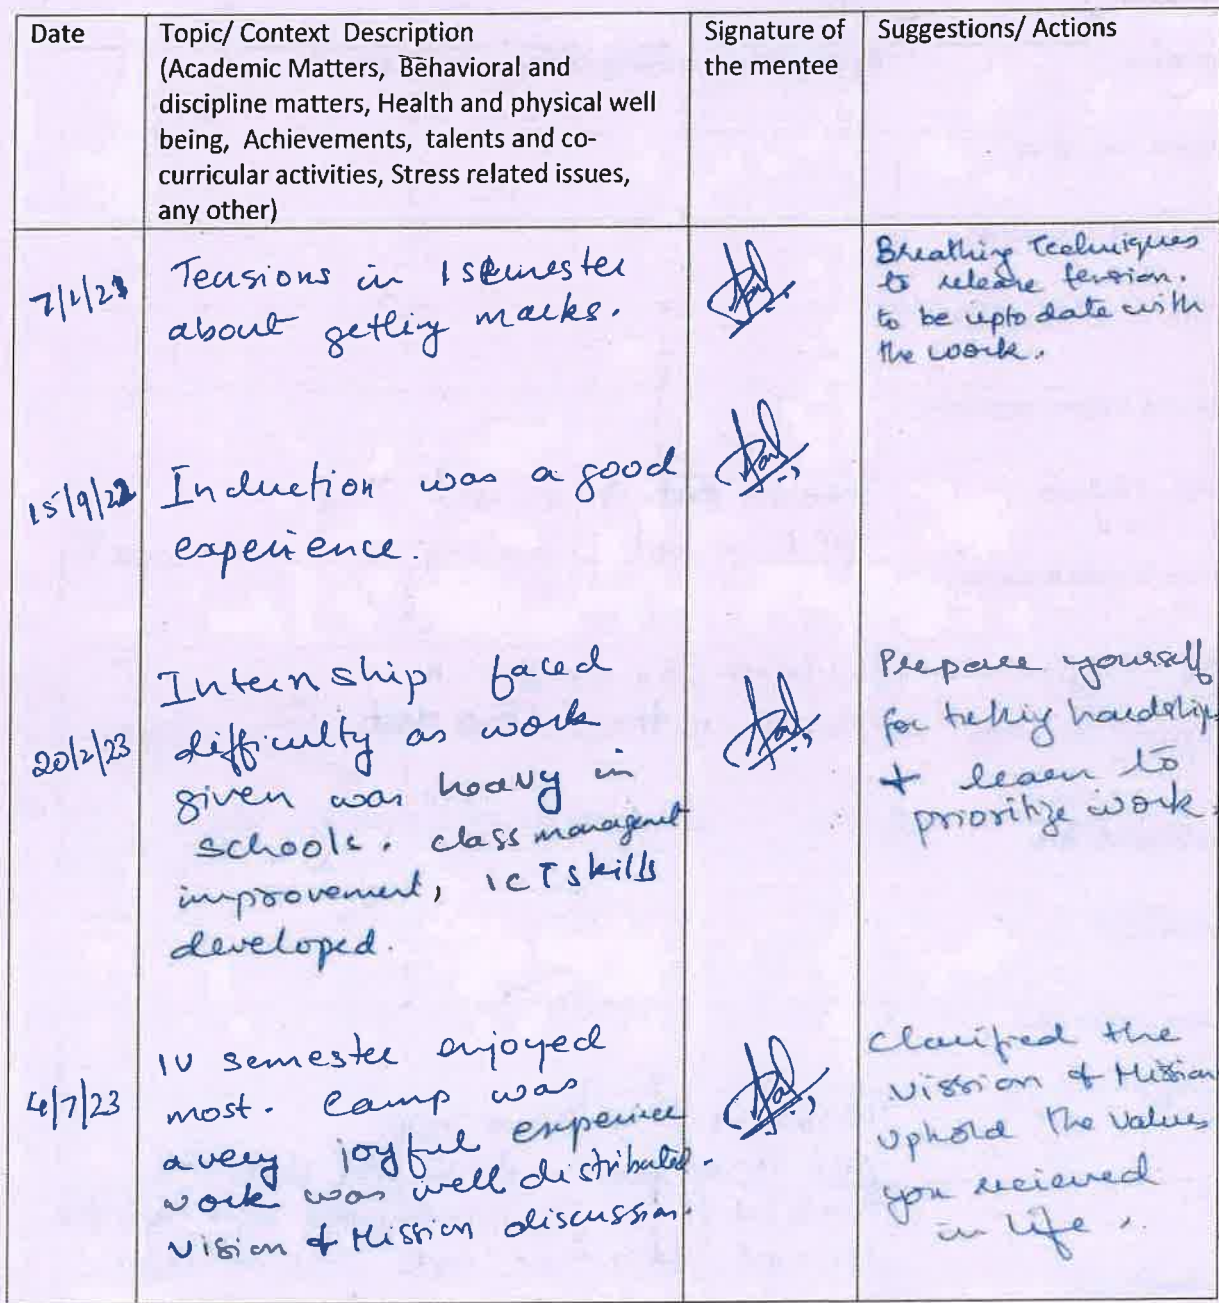 Date
Topic/ Context Description
(Academic Matters, Behavioral and
discipline matters, Health and physical well
being, Achievements, talents and co-
curricular activities, Stress related issues,
any other)
Signature of
the mentee
Suggestions/ Actions
Tensions in I semester
about getting marks.
Breathing Techniques
to release tension.
to be upto date with
the work.
15/9/22
Induction was a good
experience.
20/2/23
Internship faced
difficulty as work
given was heavy in
schools. class managemet
improvement, ICT skills
developed.
Prepare yourself
for taking hardships
+ learn to
prioritize work.
4/7/23
IV semester enjoyed
most. Camp was
a very joyful experience
work was well distributed.
Vision & Mission discussion.
Clarified the
Vission & Mission
Uphold the values
you recieved
in life.